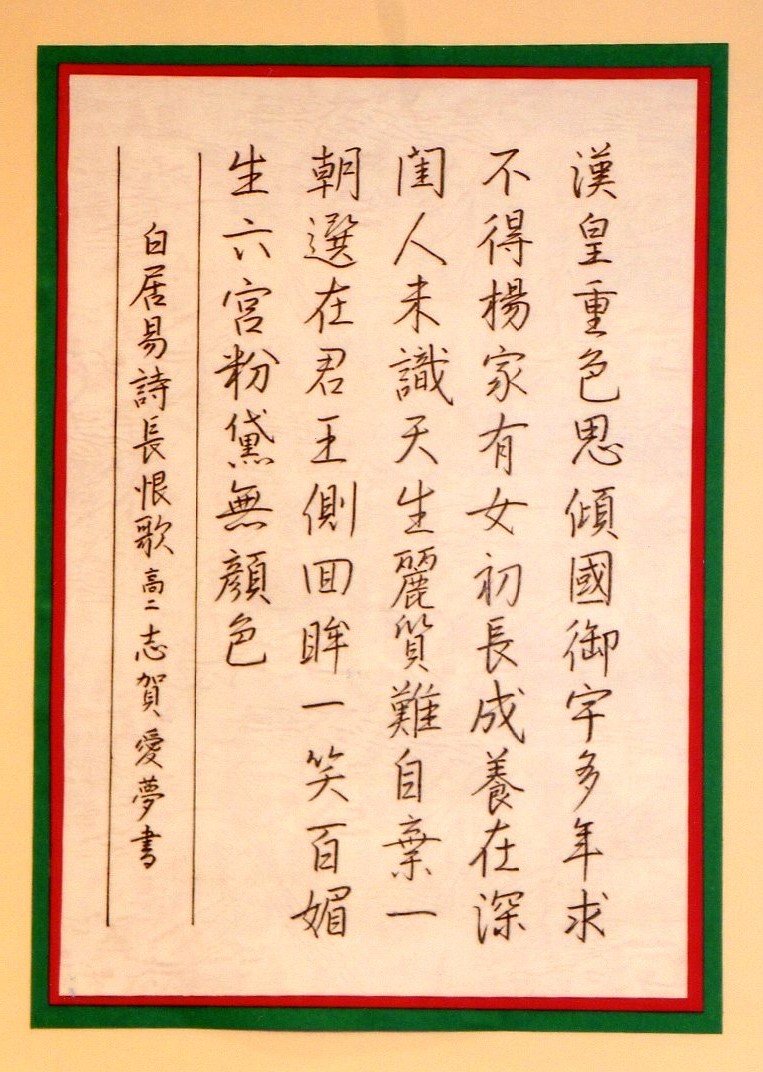 漢皇重色思傾國御宇多年求
不得楊家有女初長成養在深
閨人未識天生麗質難自棄一
朝選在君王側回眸一笑百媚
生六宮粉黛無顔色
白居易詩長恨歌高二志賀愛夢書